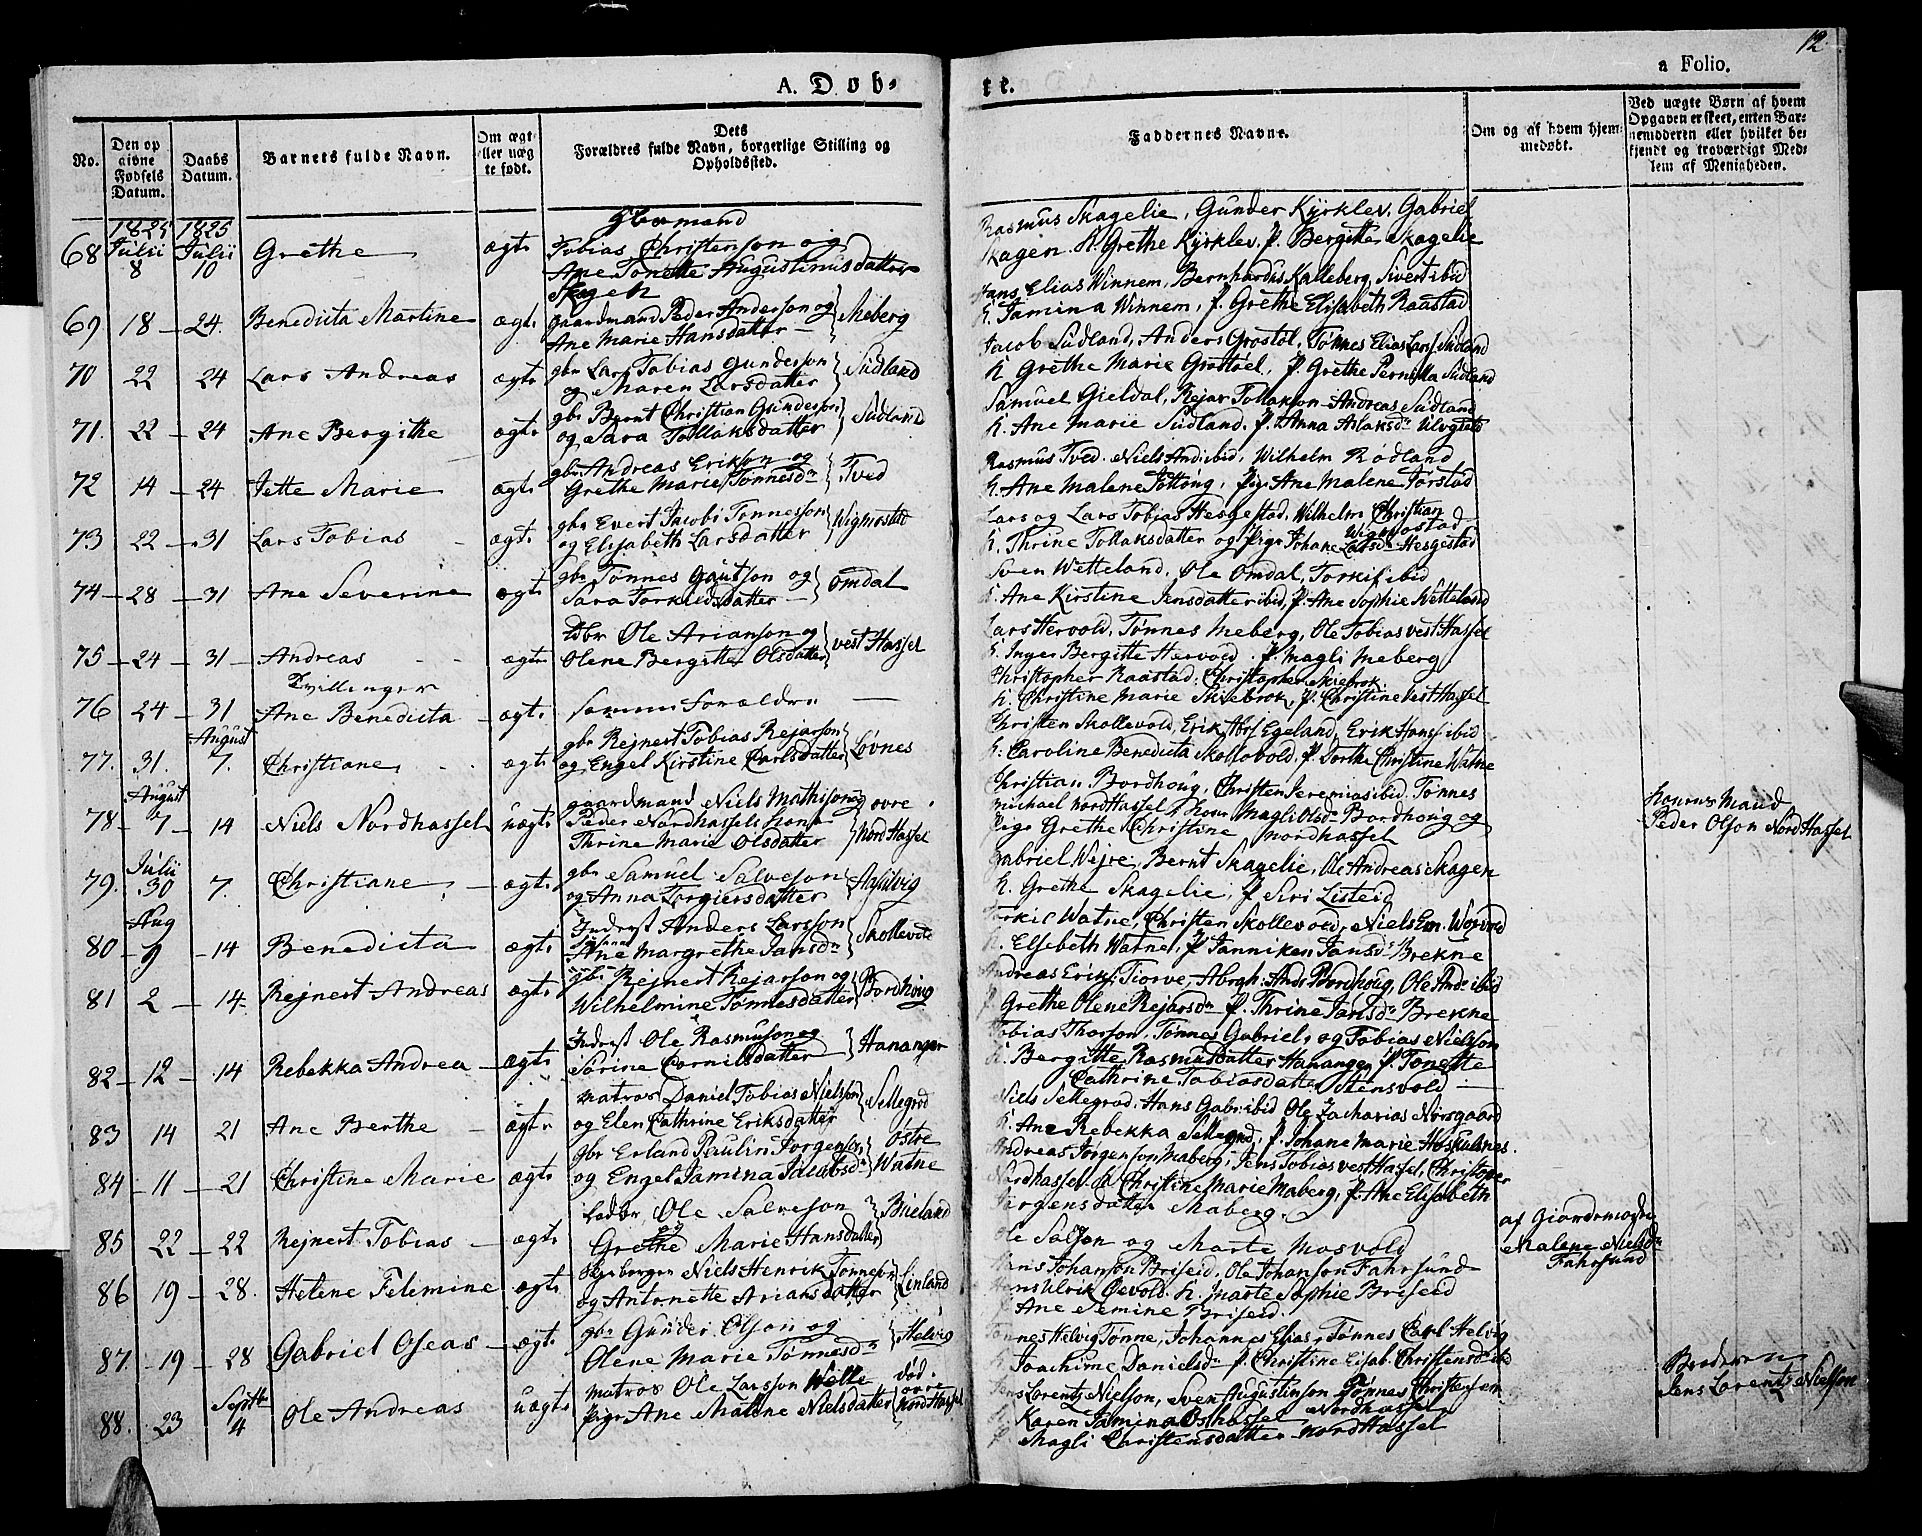 12.
A. Døb-
te.
a Folio.
No.
Den op
givne
Fødsels
Datum.
Daabs
Datum.
Barnets fulde Navn.
Om ægte
eller uæg
te født.
Dets
Forældres fulde Navn, borgerlige Stilling og
Opholdssted.
Faddernes Navne.
Om og af hvem hjem-
medøbt.
Ved uægte Børn af hvem
Opgaven er skeet, enten Bar-
nemoderen eller hvilket be-
kjendt og troværdigt Med-
lem af Menigheden.
1825 1825
68 Julii 8 Julii 10 Grethe ægte
Tobias Christenson og
Ane Tonette Augustinusdatter
Skagen
Rasmus Skagelie, Gunder Kyrklev, Gabriel
Skagen. K. Grethe Kyrklev, P. Bergitte Skagelie
69 18 - 24. Benedicta Martine ægte
gaardmand Peder Anderson og
Ane Marie Hansdatter
Meberg
Hans Elias Winnem, Bernhardus Kalleberg, Sivert ibid
K. Jamina Winnem, P. Grethe Elisabeth Raastad
70 22 24 Lars Andreas ægte
gbr Lars Tobias Gunderson
og Maren Larsdatter
Sudland
Jacob Sudland, Anders Grostøl, Tønnes Elias Lars. Sudland
K Grethe Marie Grøstøel, P. Grethe Pernilla Sudland
71. 22 - 24 Ane Bergithe ægte
gbr Bernt Christian Gunderson
og Sara Tollaksdatter
Sudland
Samuel Gieldal, Rejar Tollakson Andreas Sudland
K. Ane Marie Sudland. P. Anna Aslaksdr
72 14 - 24 Jette Marie ægte
gbr Andreas Erikson og
Grethe Marie Tønnesdr
Tved
Rasmus Tved. Niels And. ibid, Wilhelm Rødland
K. Ane Malene Jøllong, Pige Ane Malene Tørstad
73 22 - 31 Lars Tobias ægte
gbr Evert Jacobi Tønneson
og Elisabeth Larsdatter
Wigmostad
Lars og Lars Tobias Hesgestad, Wilhelm Christian
Wigmostad
K. Thrine Tollaksdatter og Pige Johane Larsdr Hesgestad
74 - 28 - 31 Ane Severine ægte
gbr Tønnes Gautson og
Sara Torkildsdatter
Omdal
Sven Wetteland, Ole Omdal, Torkil ibid
K. Ane Kirstine Jensdatter ibid, P. Ane Sophie Wetteland
75 - 24 - 31 - Andreas ægte
Ole Arianson og
Olene Bergitte Olsdatter
vest Hassel
Lars Hervold, Tønnes Meberg, Ole Tobias vest Hassel
K. Inger Bergitte Hervold. P. Magli Meberg
Tvillinger
76 24 - 31 Ane Benedicta - ægte
samme Forældre
Christopher Raastad, Christopher Skiebrok,
K. Christine Marie Skiebrok, P. Christine Vest Hassel
77. 31. August 7. Christiane ægte
gbr Rejnert Tobias Rejarson
og Engel Kirstine Carlsdatter
Løvnes
Christen Skollevold, Erik Abr. Egeland, Erik Hans. ibid
K. Caroline Benedicta Skollevold, P. Dorthe Christine Watne
78 August 7 - 14 Niels Nordhassel uægte
gaardmand Niels Mathison
Peder Nordhassels kone
Thrine Marie Olsdatter
øvre
Nord Hassel
Christian Bordhoug, Christen Jeremias ibid, Tønnes
Michael Nordhassel, Kone Magli Olsdr Bordhoug og
Pige Grethe Christine Nordhassel
Konens Mand
Peder Olson Nord Hassel
79. Julii 30 7. Christiane ægte
gbr Samuel Salveson
og Anna Torgiersdatter
Hasselvig
Gabriel Vejre, Bernt Skagelie, Ole Andreas Skagen
K. Grethe Skagelie, P Siri Listeid
80 Aug 9 - 14 Benedicta ægte
Inderst Anders Larsson
Ane Margrethe Jansdr
Skollevold
Torkil Watne, Christen Skollevold, Niels Em.
K. Elsebeth Watne, P. Janniken Jansdr Brekne
81 2 - 14. Rejnert Andreas ægte
gbr Rejnert Rejarson og
Wilhelmine Tønnesdatter
Bordhoug
Andreas Erik. Tiorve, Abrah. And. Bordhoug, Ole And. ibid
P Grethe Olene Rejarsdr P. Thrine Jansdr Brekne
82 - 12 - 14 Rebekka Andrea - ægte
Inderst Ole Rasmuson og
Sørine Cornilsdatter
Hananger
Tobias Thorson, Tønnes Gabriel, og Tobias Nielsson
K. Bergitte Rasmusdatter Hananger, P. Tonette
Cathrine Tobiasdatter Stensvold
83 14 21 Ane Berthe ægte
matros Daniel Tobias Nielsson
og Elen Cathrine Eriksdatter
Sellegrod
Niels Sellegrod. Hans Gabr ibid Ole Zacharias Norsgaard
K. Ane Rebekka Sellegrod, P. Johane Marie
84 - 11 - 21 Christine Marie ægte
gbr Erland Paulin Jørgenson
og Engel Jamina Jacobsdr
østre
Watne
Andreas Jørgenson Maberg, Jens Tobias vest Hassel, Christoper
Nordhassel. K Christine Marie Maberg, P. Ane Elisabeth
Jørgensdatter Maberg.
85 22 - 22 Rejnert Tobias - ægte
Ole Salveson
og
Grethe Marie Hansdatter
Bueland
Ole Salson og Marte Mosvold
af Giordemoder
Malene Nielsdr
Fahrsund
86 19 - 28. Helene Felemine ægte
Niels Henrik Tønneson
og Antonette Ariansdatter
Linland
Hans Johanson Briseid, Ole Johanson Fahrsund
Hans Ulrik Øevold. K. Marte Sophie Briseid
P Ane Semine Briseid.
87. - 19 - 28 Gabriel Oseas - ægte
gbr Gunder Olson og
Olene Marie Tønnesdr
Helvig
Tønnes Helvig Tønne, Johannes Elias, Tønnes Carl Helvig
K. Joachime Danielsdr P. Christine Elisab. Christensdr ibid
88. 23 Septbr 4 Ole Andreas uægte
matros Ole Larsson Welle død.
Pige Ane Malene Nielsdatter
øvre
Nord Hassel
Jens Lorentz Nielson, Sven Augustinson Tønnes Christensen
Nordhassel
K Karen Jamina Osthassel
P Magli Christensdatter Nordhassel
Broderen
Jens Lorentz Nielson